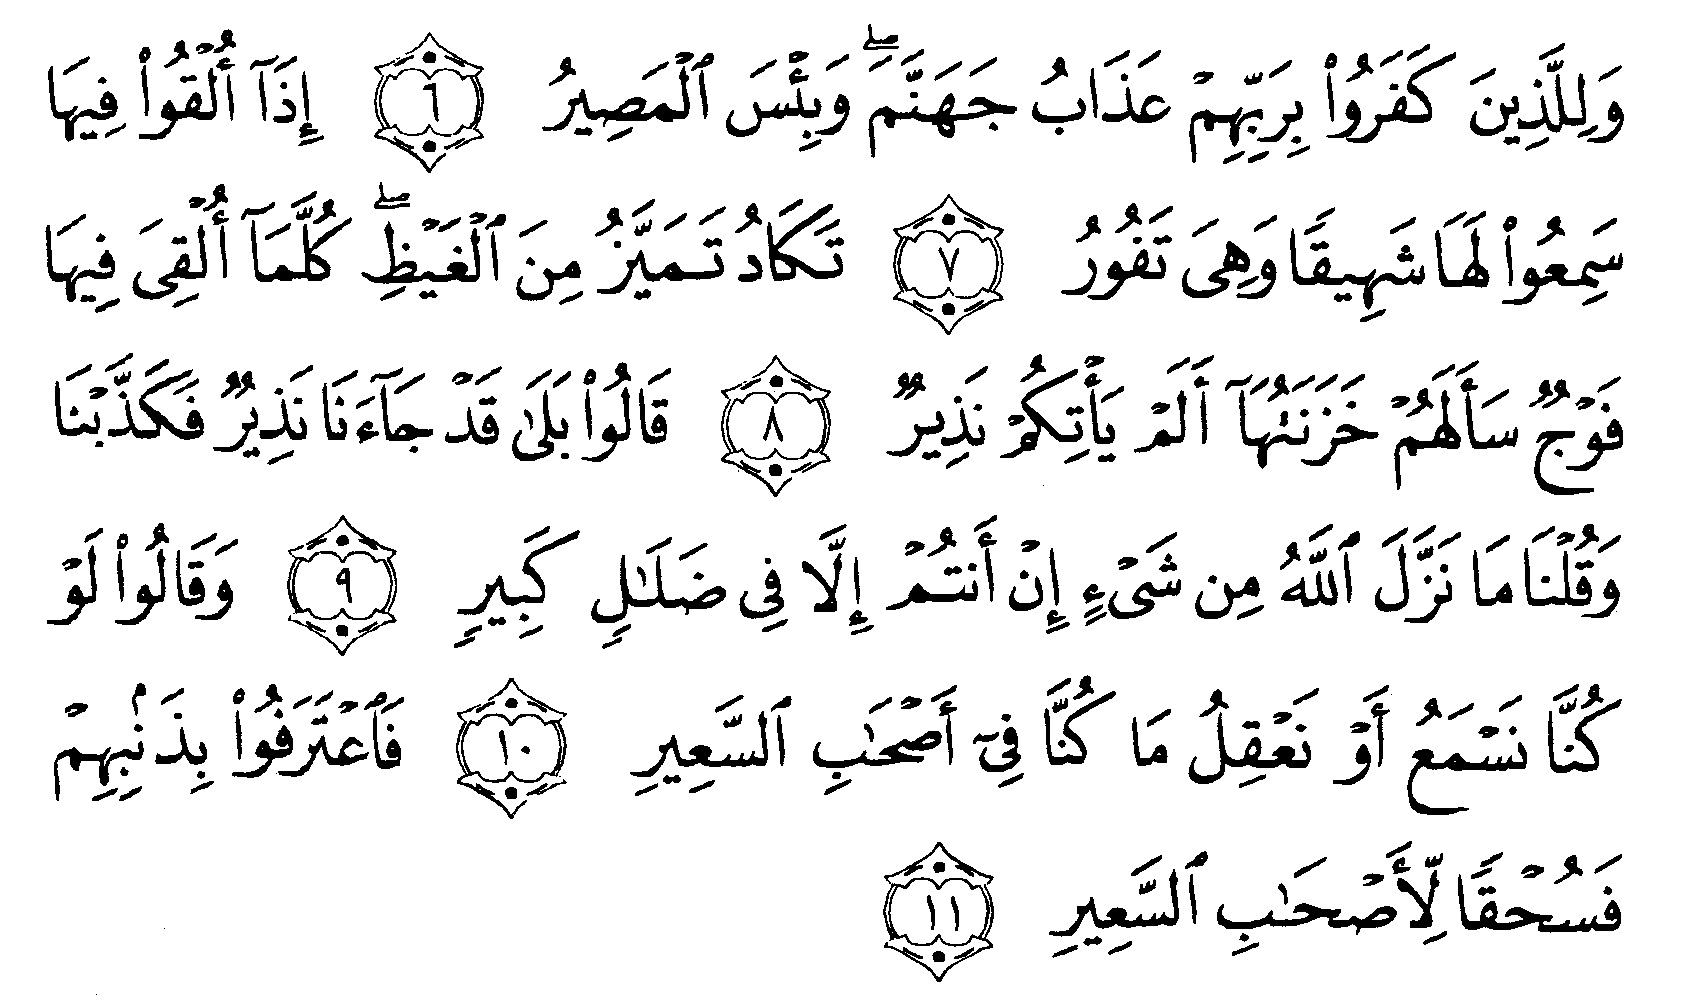 وَلِلَّذِينَ كَفَرُواْ بِرَبِّهِمۡ عَذَابُ جَهَنَّمَۖ وَبِئۡسَ ٱلۡمَصِيرُ ٦ إِذَآ أُلۡقُواْ فِيهَا
سَمِعُواْ لَهَا شَهِيقٗا وَهِيَ تَفُورُ ٧ تَكَادُ تَمَيَّزُ مِنَ ٱلۡغَيۡظِۖ كُلَّمَآ أُلۡقِيَ فِيهَا
فَوۡجٞ سَأَلَهُمۡ خَزَنَتُهَآ أَلَمۡ يَأۡتِكُمۡ نَذِيرٞ ٨ قَالُواْ بَلَىٰ قَدۡ جَآءَنَا نَذِيرٞ فَكَذَّبۡنَا
وَقُلۡنَا مَا نَزَّلَ ٱللَّهُ مِن شَيۡءٍ إِنۡ أَنتُمۡ إِلَّا فِي ضَلَٰلٖ كَبِيرٖ ٩ وَقَالُواْ لَوۡ
كُنَّا نَسۡمَعُ أَوۡ نَعۡقِلُ مَا كُنَّا فِيٓ أَصۡحَٰبِ ٱلسَّعِيرِ ١٠ فَٱعۡتَرَفُواْ بِذَنۢبِهِمۡ
فَسُحۡقٗا لِّأَصۡحَٰبِ ٱلسَّعِيرِ ١١